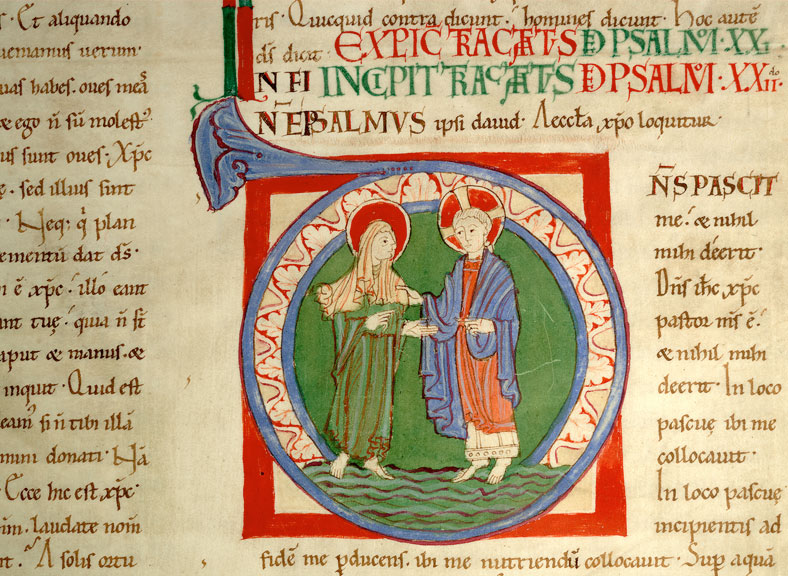 Et aliquando
uemanus uerum·
uas habes. oues meā
æ ego n̄ sū molest᷒
sunt oues· Xp̄c
sed illius sunt
Neq; q̇ plan
ementū dat ds̄·
ē xp̄c· illo eant
tuę· quia n̄ st̄
aput æ manus· æ
inquit· Quid est
si n̄ tibi illā
donati· Nā
Ecce hic est xp̄c·
laudate nom̄
A solis ortu
ris· Quicquid contra dicunt· homines dicunt· Hoc autē
ds̄ dicit· EXPLIC̄ TRACTATUS DE PSALMO· XXI·
IN FI INCIPIT TRACTATUS DE PSALMO· XXII·
NĒ PSALMVS ipsi dauid· Aeccl̄a xp̄o loquitur·
DN̄S PASCIT
me· æ nihil
mihi deerit·
Dn̄s ih̄c xp̄c
pastor ms̄ ē·
æ nihil mihi
deerit· In loco
pascuę ibi me
collocauit·
In loco pascuę
incipientis ad
fidē me p̄ducens. ibi me nutriendū collocauit· Sup̄ aquā